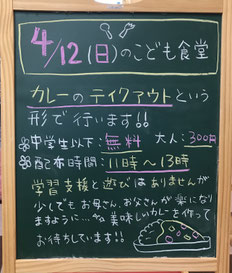 4/12(日)のこども食堂
カレーのテイクアウトという
形で行います!!
中学生以下:無料 大人:300円
配布時間:11時～13時
学習支援と遊びはありませんが
少しでもお母さん、お父さんが楽になり
ますように…美味しいカレーを作って
お待ちしています!!